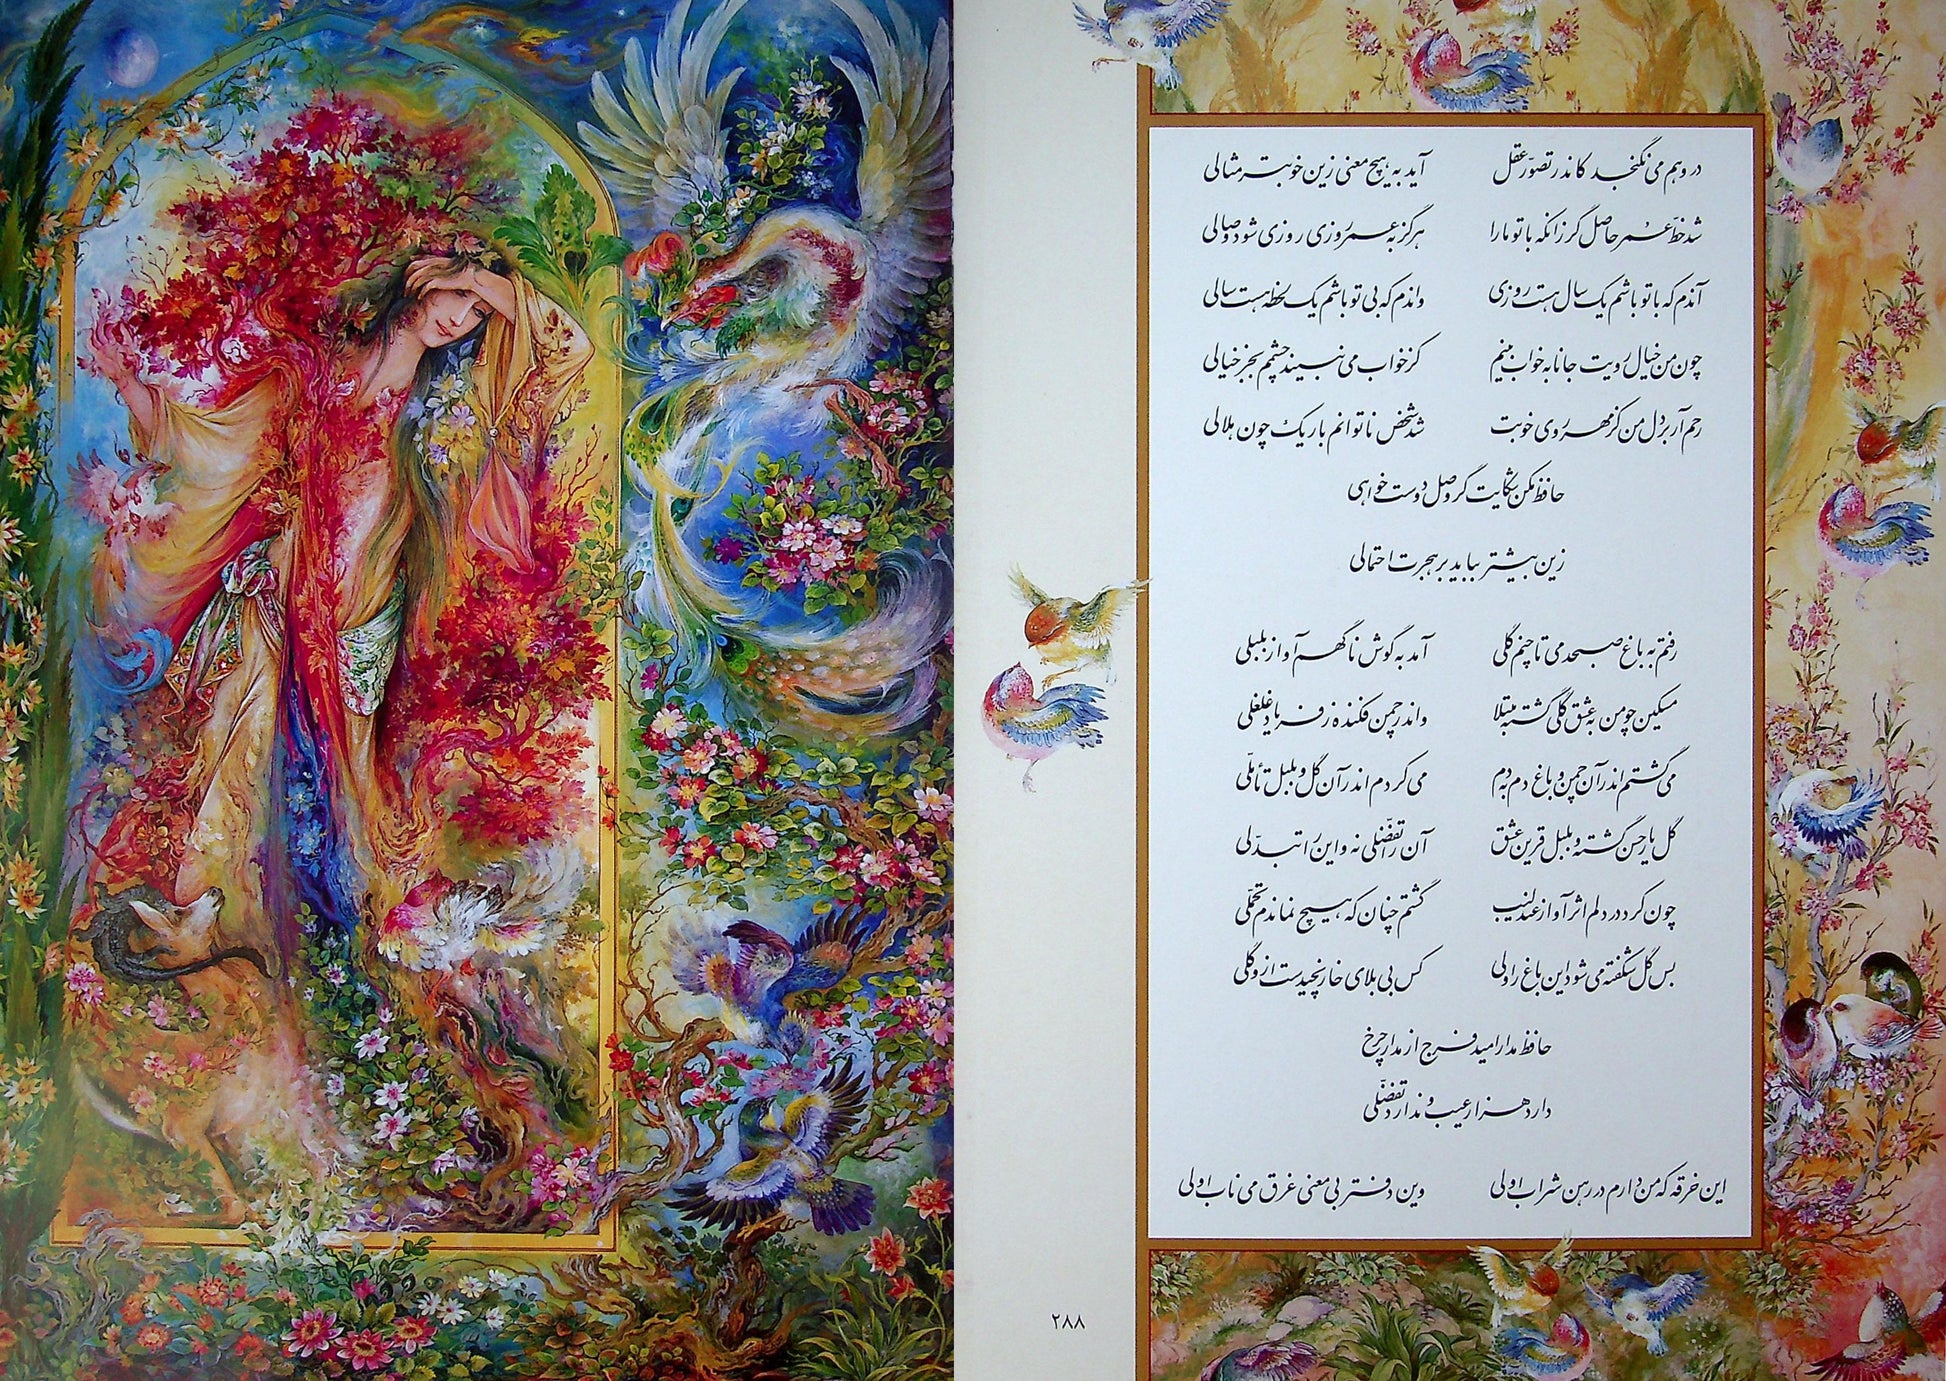 در وهم می نگنجد کاندر تصوّر عقل آید به هیچ معنی زین خوبتر مثالی
شد حظّ عمر حاصل گر زانکه با تو ما را هرگز به عمر روزی روزی شود وصالی
آندم که با تو باشم یک سال هست روزی واندم که بی تو باشم یک لحظه هست سالی
چون من خیال رویت جانا به خواب بینم کز خواب می نبیند چشمم بجز خیالی
رحم آر بر دل من کز مهر روی خوبت شد شخص ناتوانم باریک چون هلالی
حافظ مکن شکایت گر وصل دوست خواهی
زین بیشتر بباید بر هجرت احتمالی
رفتم به باغ صبحدمی تا چنم گلی آمد به گوش ناگهم آواز بلبلی
مسکین چو من به عشق گلی گشته مبتلا واندر چمن فکنده ز فریاد غلغلی
می گشتم اندر آن چمن و باغ دم به دم می کردم اندر آن گل و بلبل تأمّلی
گل یار حسن گشته و بلبل قرین عشق آن را تفضّلی نه و این را تبدّلی
چون کرد در دلم اثر آواز عندلیب گشتم چنان که هیچ نماندم تحمّلی
بس گل شکفته می شود این باغ را ولی کس بی بلای خار نچیدست ازو گلی
حافظ مدار امید فرج از مدار چرخ
دارد هزار عیب و ندارد تفضّلی
این خرقه که من دارم در رهن شراب اولی وین دفتر بی معنی غرق می ناب اولی
۲۸۸